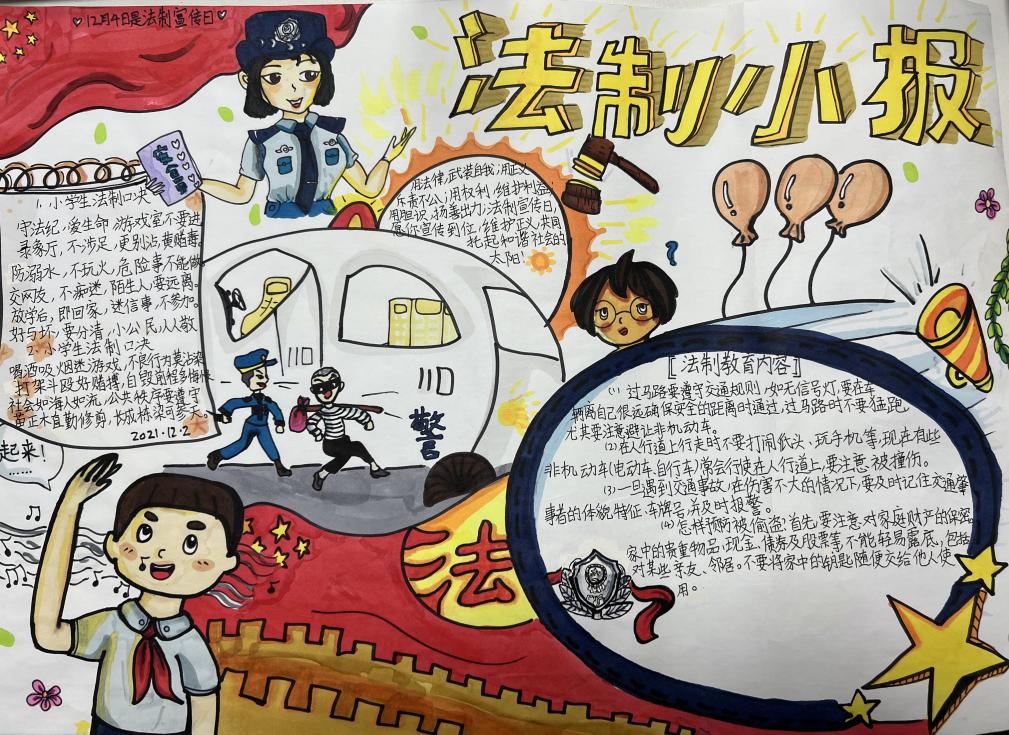 12月4日是法制宣传日
法制小报
1. 小学生法制口决
守法纪,爱生命,游戏室不要进
录像厅,不涉足,更别沾,黄赌毒。
防溺水,不玩火,危险事不能做。
交网友,不痴迷,陌生人,要远离。
放学后,即回家,迷信事,不参加。
好与坏,要分清,小公民,人人敬
2、小学生法制口决
喝酒吸烟迷游戏,不良行为莫沾染
打架斗殴好赌搏,自毁前程多悔恨
社会如海人如流,公共秩序要遵守
苗正木直勤修剪,长成栋梁可参天。
2021.12.2
用法律,武装自我;用正义
斥责不公;用权利,维护利益;
用胆识,扬善出力;法制宣传日,
愿你宣传到位,维护正义,共同
托起和谐社会的
太阳!
警
起来!
法
〖法制教育内容〗
(1) 过马路要遵守交通规则,如无信号灯,要在车
辆离自己很远确保安全的距离时通过,过马路时不要猛跑,
尤其要注意避让非机动车。
(2)在人行道上行走时不要打闹低头、玩手机等,现在有些
非机动车(电动车,自行车)常会行使在人行道上,要注意被撞伤。
(3)一旦遇到交通事故,在伤害不大的情况下,要及时记住交通肇
事者的体貌特征,车牌号,并及时报警。
(4)怎样预防被偷盗:首先,要注意对家庭财产的保密。
家中的贵重物品,现金,债券及股票等,不能轻易露底,包括
对某些亲友、邻居。不要将家中的钥匙随便交给他人使
用。